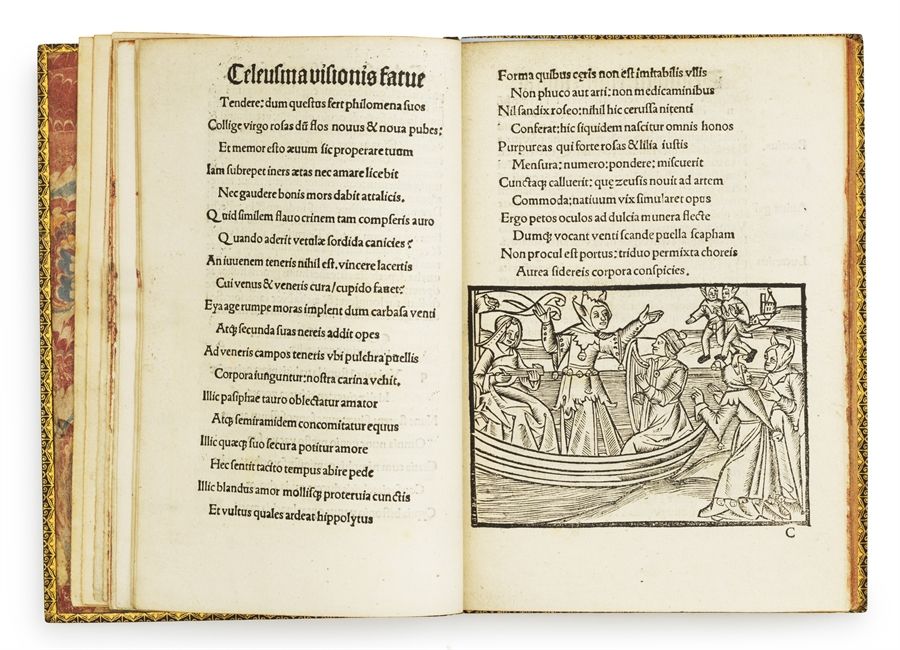 Celeusma visionis fatue
Tendere: dum questus fert philomena suos
Collige virgo rosas dũ flos nouus & noua pubes:
Et memor esto æuum sic properare tuum
Iam subrepet iners ætas nec amare licebit
Nec gaudere bonis mors dabit attalicis.
Quid similem flauo crinem tam compseris auro
Quando aderit vetulæ sordida canicies?
An iuuenem teneris nihil est, vincere lacertis
Cui venus & veneris cura/cupido fauet?
Eya age rumpe moras implent dum carbasa venti
Atqȝ secunda suas nereis addit opes
Ad veneris campos teneris vbi pulchra puellis
Corpora iunguntur: nostra carina vehit.
Illic pasiphae tauro oblectatur amator
Atqȝ semiramidem concomitatur equus
Illic quæqȝ suo secura potitur amore
Hec sentit tacito tempus abire pede
Illic blandus amor mollisqȝ proteruia cunctis
Et vultus quales ardeat hippolytus
Forma quibus ceris non est imitabilis vllis
Non phuco aut arti: non medicaminibus
Nil sandix roseo: nihil hic cerussa nitenti
Conferat: hic siquidem nascitur omnis honos
Purpureas qui forte rosas & lilia iustis
Mensura: numero: pondere: miscuerit
Cunctaqȝ calluerit: quę zeusis nouit ad artem
Commoda: natiuum vix simularet opus
Ergo petos oculos ad dulcia munera flecte
Dumqȝ vocant venti scande puella scapham
Non procul est portus: triduo permixta choreis
Aurea sidereis corpora conspicies.
C